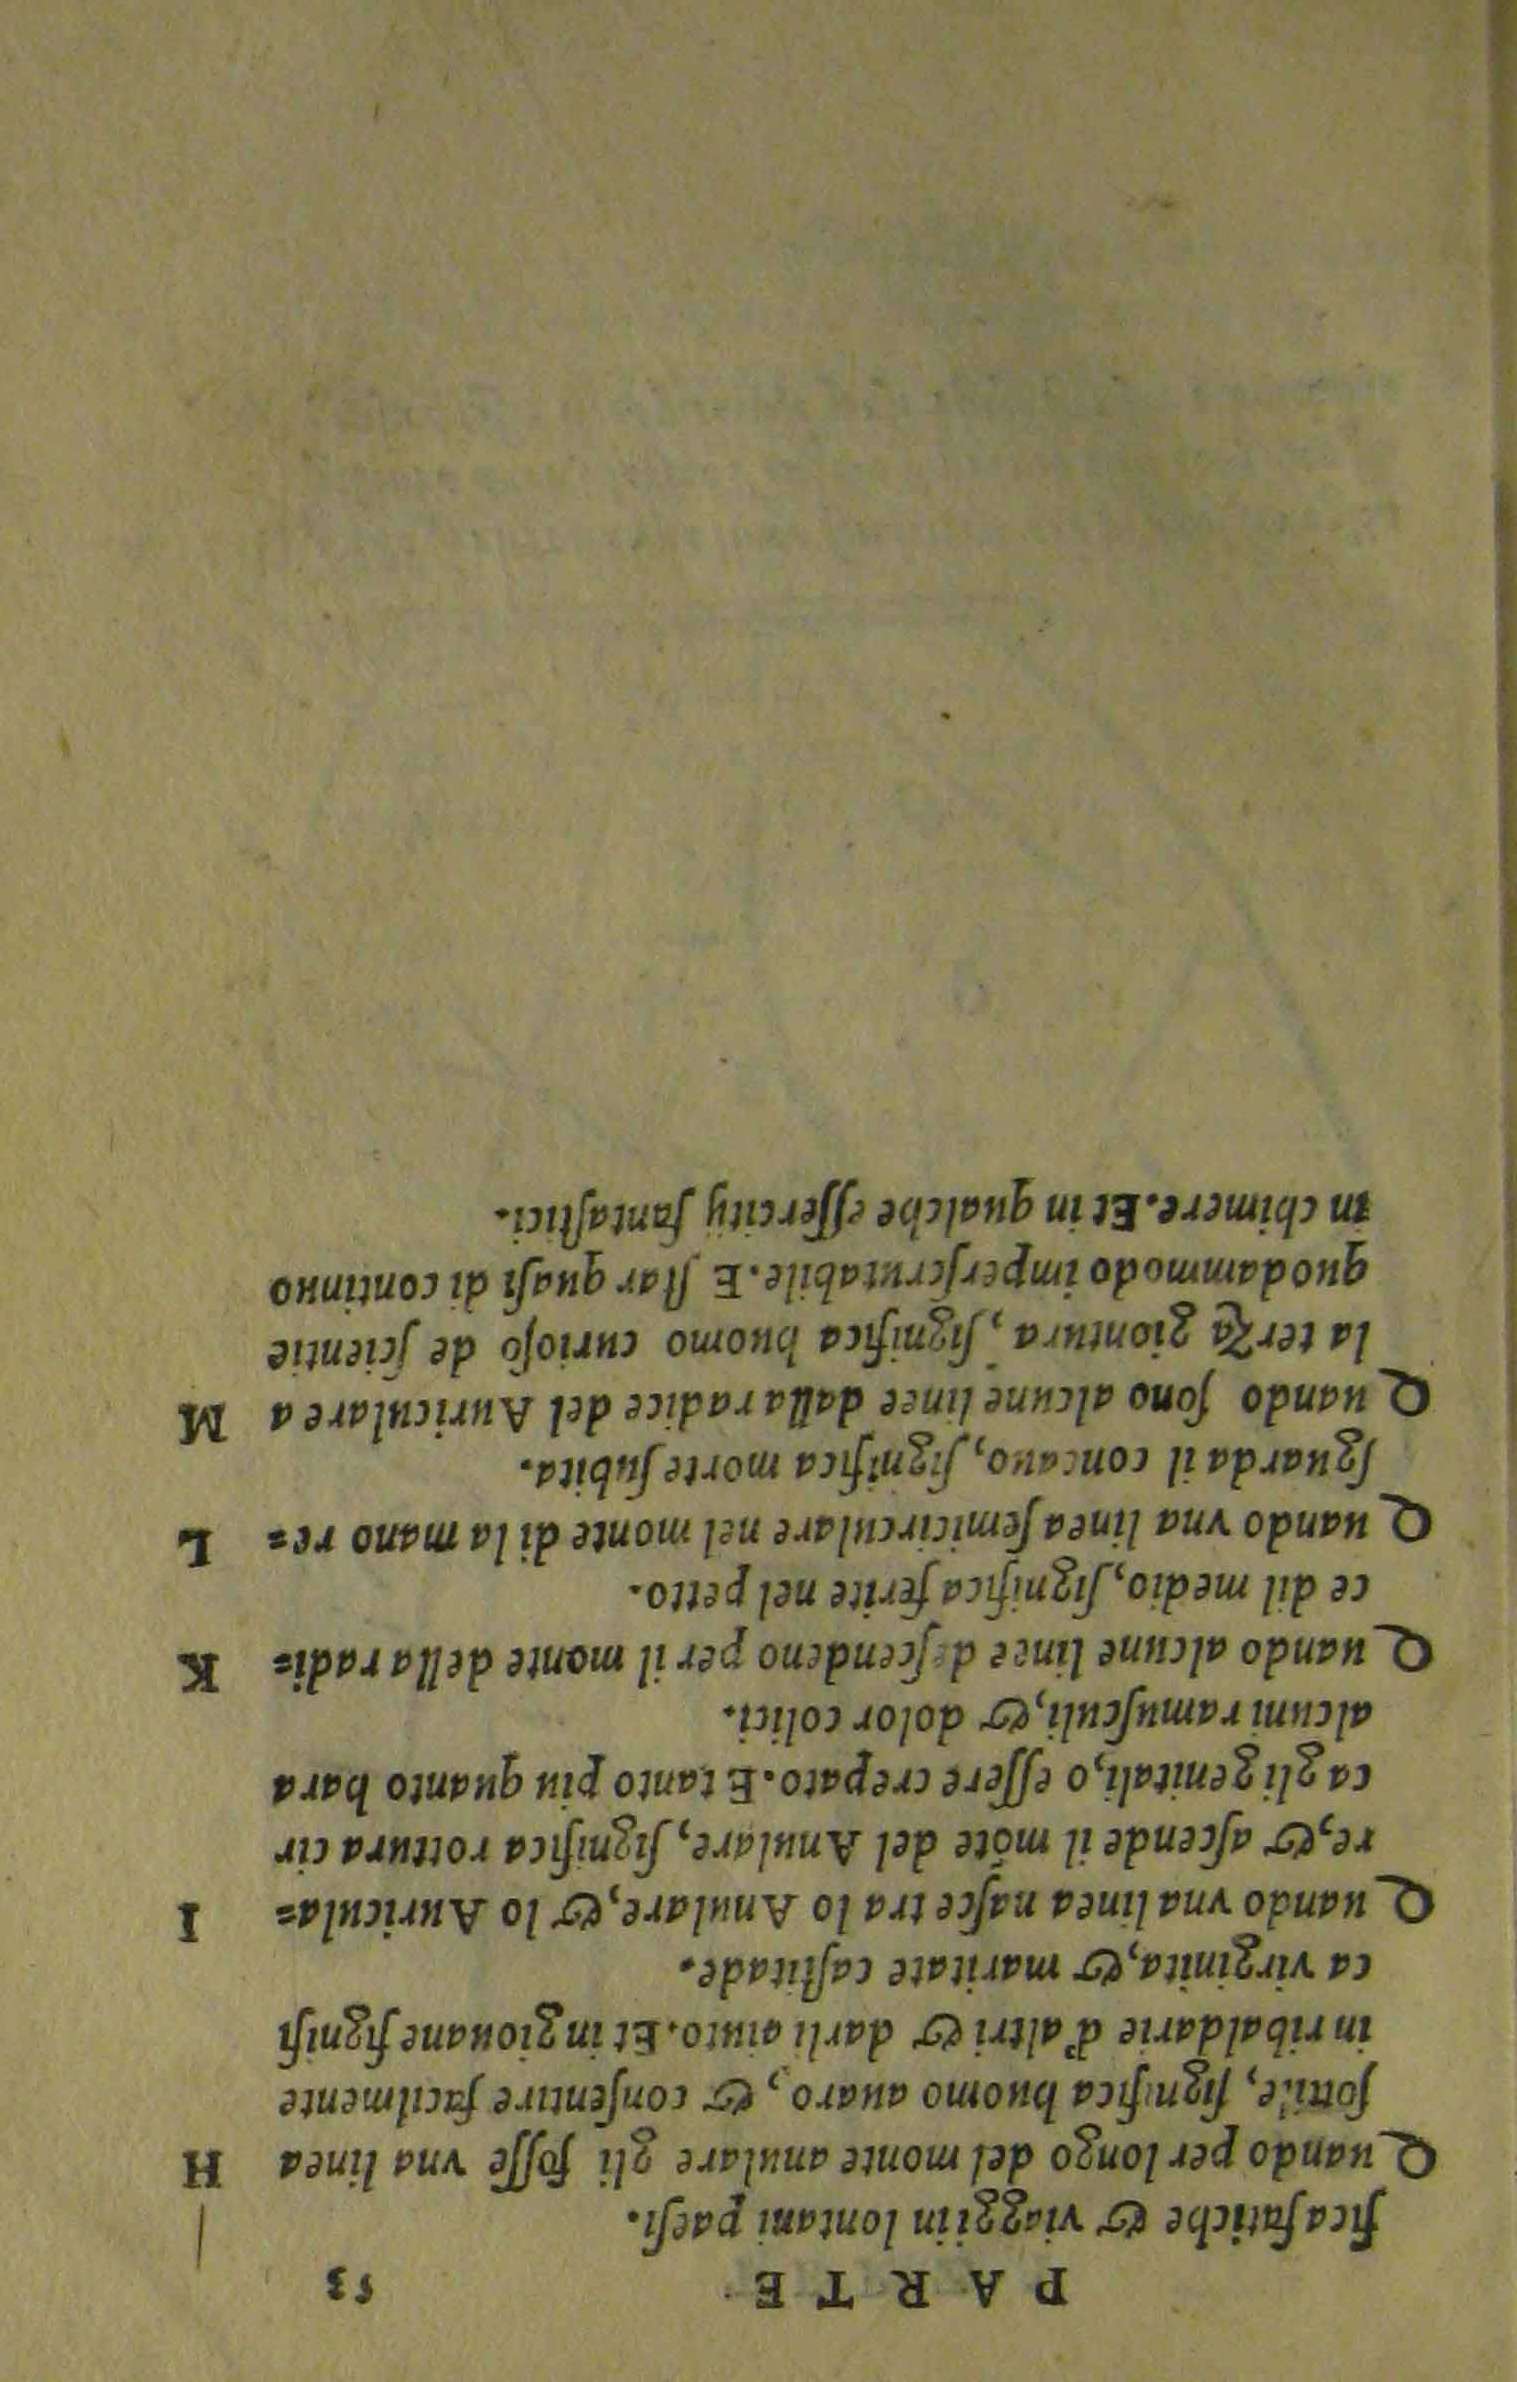 PARTE 53
fica fatiche & viaggi in lontani paesi.
Quando per longo del monte anulare gli fosse vna linea H
sottile, significa huomo auaro, & consentire facilmente
in ribaldarie d'altri & darli aiuto. Et in giouane signifi
ca virginita, & maritate castitade.
Quando vna linea nasce tra lo Anulare, & lo Auricula= I
re, & ascende il mōte del Anulare, significa rottura cir
ca gli genitali, o essere crepato. E tanto piu quanto hara
alcuni ramusculi, & dolor colici.
Quando alcune linee descendeno per il monte della radi= K
ce dil medio, significa ferite nel petto.
Quando vna linea semicirculare nel monte di la mano re= L
sguarda il concauo, significa morte subita.
Quando sono alcune linee dalla radice del Auriculare a M
la terza giontura, significa huomo curioso de scientie
quodammodo imperscrutabile. E star quasi di continuo
in chimere. Et in qualche essercitij fantastici.